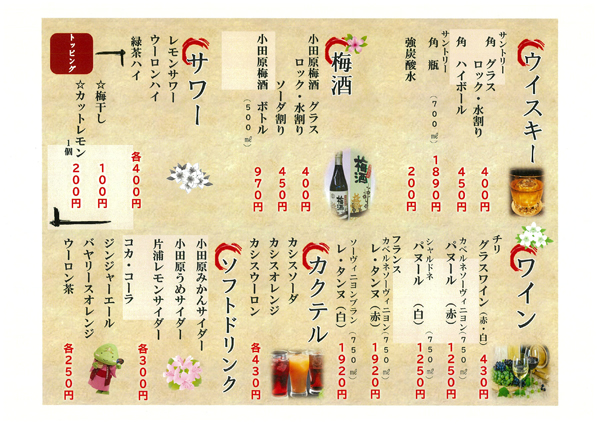 ウイスキー
サントリー
角 グラス
ロック・水割り 400円
角 ハイボール 450円
サントリー
角 瓶 (700㎖) 1890円
強炭酸水 200円
梅酒
小田原梅酒 グラス
ロック・水割り 400円
ソーダ割り 450円
小田原梅酒 ボトル (500㎖) 970円
サワー
レモンサワー
ウーロンハイ
緑茶ハイ
各400円
トッピング
☆梅干し 100円
☆カットレモン 1個 200円
ワイン
チリ
グラスワイン(赤・白) 430円
カベルネソーヴィニヨン(750㎖)
パヌール (赤) 1250円
シャルドネ (750㎖)
パヌール (白) 1250円
フランス
カベルネソーヴィニヨン(750㎖)
レ・タンヌ(赤) 1920円
ソーヴィニヨンブラン(750㎖)
レ・タンヌ(白) 1920円
カクテル
カシスソーダ
カシスオレンジ
カシスウーロン
各430円
ソフトドリンク
小田原みかんサイダー
小田原うめサイダー
片浦レモンサイダー
各300円
コカ・コーラ
ジンジャーエール
バヤリースオレンジ
ウーロン茶
各250円